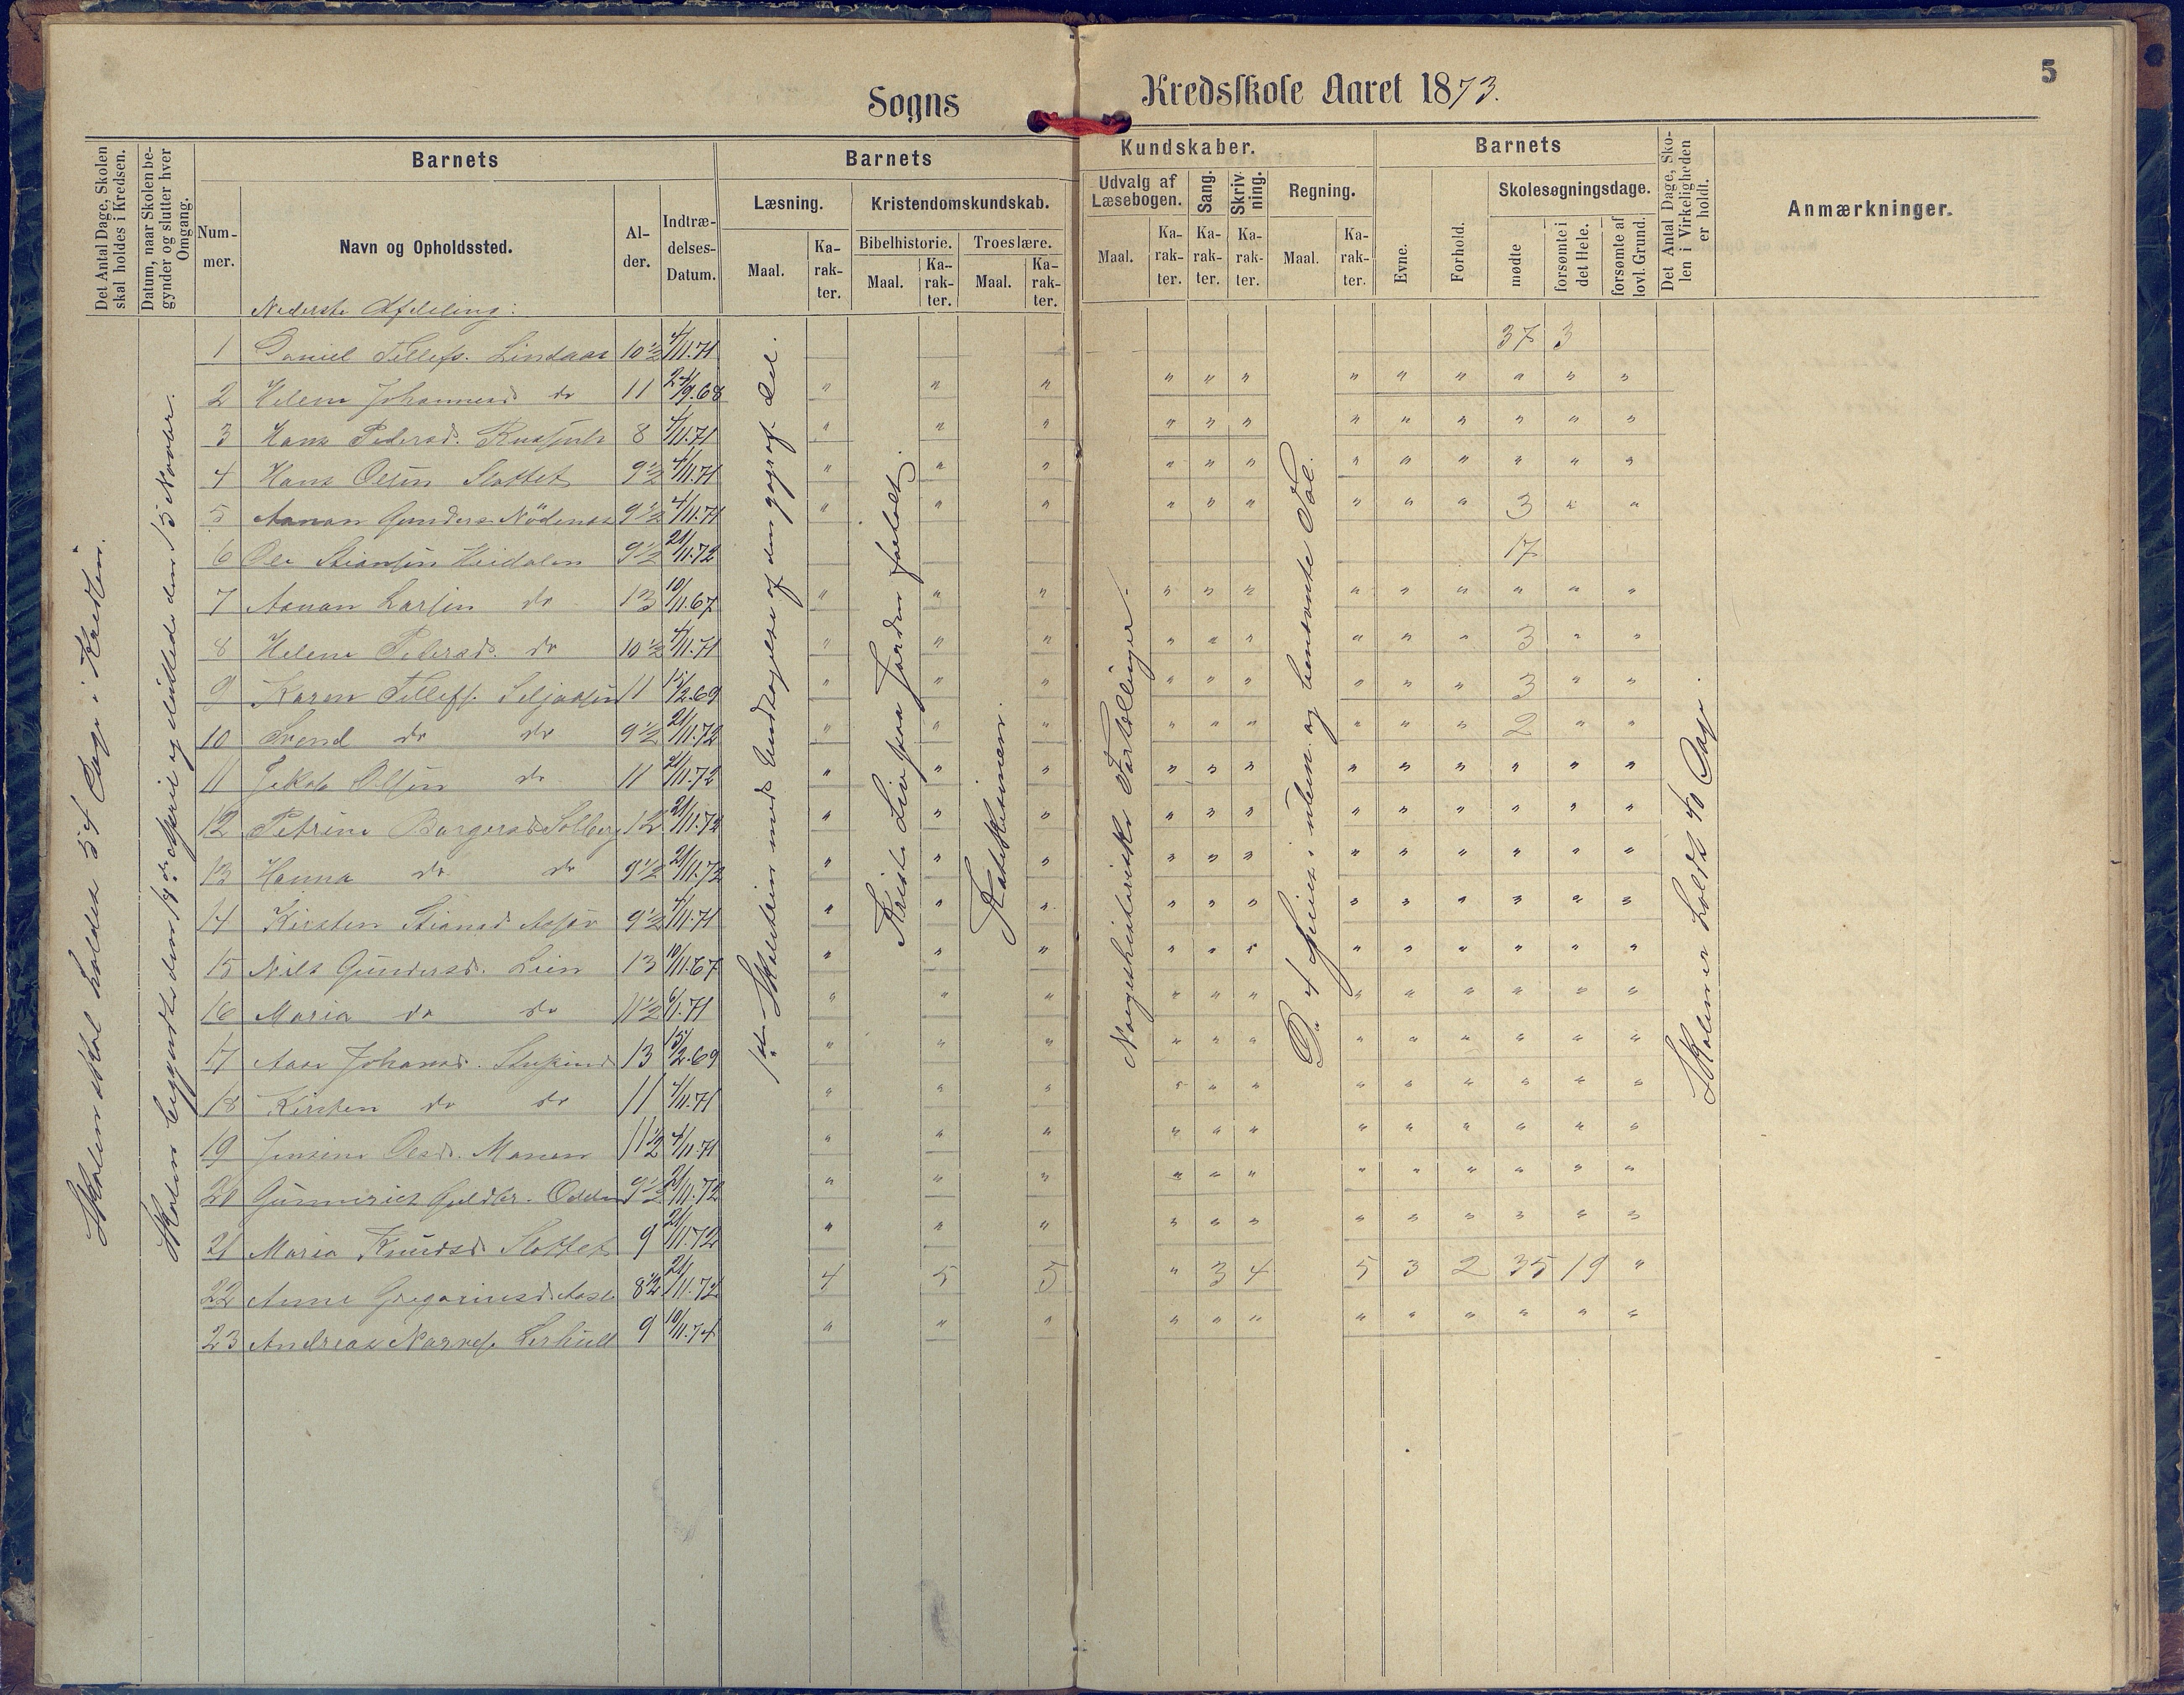 5
Sogns Kredsskole Aaret 1873.
Det Antal Dage, Skolen skal holdes i Kredsen.
Datum, naar Skolen begynder og slutter hver Omgang.
Barnets
Barnets
Kundskaber.
Barnets
Det Antal Dage, Skolen i Virkeligheden er holdt.
Anmærkninger.
Nummer.
Navn og Opholdssted.
Alder.
Indtrædelses-Datum.
Læsning.
Kristendomskundskab.
Udvalg af Læsebogen.
Sang.
Skrivning.
Regning.
Evne.
Forhold.
Skolesøgningsdage.
Maal.
Karakter.
Bibelhistorie.
Troeslære.
Maal.
Karakter.
Maal.
Karakter.
Maal.
Karakter.
Karakter.
Karakter.
Maal.
Karakter.
mødte
forsømte i det Hele.
forsømte af lovl. Grund.
Skolen skal holdes 54 Dage i Kredsen.
Skolen begyndte den 19de April og sluttede den 15 Novbr.
1ste Skoletrin med Undtagelse af den geograf. Del.
Kristi Liv paa Jorden fortalt.
Katekismen.
Norgeshistoriske Fortællinger.
De 4 Species i uben. og benævnte Tal.
Skolen er holdt 40 Dage.
Nederste Afdeling:
1 Daniel Tellefs. Lindaas 10½ 4/11.71 37 3
2 Helene Johannesd. do 11 24/9.68 " " " " " " " " " " " "
3 Hans Pedersd. 8 4/11.71 " " " " " " " " " " " "
4 Hans Olsen Slottet 9½ 4/11.71 " " " " " " " " " " " "
5 Aanon Gunders. Nödenes 9½ 4/11.71 " " " " " " " " " 3 " "
6 Ole Stiansen Heidalen 9½ 21/11.72 17
7 Aanon Larsen do 13 10/11.67 " " " " " " " " " " " "
8 Helene Petersd. do 10½ 4/11.71 " " " " " " " " " 3 " "
9 Karen Tellefs. Seljaasen 11 15/2.69 " " " " " " " " " 3 " "
10 Svend do do 9½ 21/11.72 " " " " " " " " " 2 " "
11 Jakob Olsen do 11 21/11.72 " " " " " " " " " " " "
12 Petrine Børgesd. Solberg 12 21/11.72 " " " " " " " " " " " "
13 Hanna do do 9½ 21/11.72 " " " " " " " " " " " "
14 Kirsten Stiansd. 9½ 4/11.71 " " " " " " " " " " " "
15 Nils Gundersd. Lien 13 10/11.67 " " " " " " " " " " " "
16 Maria do do 11½ 6/1.71 " " " " " " " " " " " "
17 Aase Johansd. 13 15/2.69 " " " " " " " " " " " "
18 Kirsten do do 11 4/11.71 " " " " " " " " " " " "
19 Jensine Olsd. Monen 11½ 4/11.71 " " " " " " " " " " " "
20 Gunnerius Guldbr. Odden 9½ 21/11.72 " " " " " " " " " " " "
21 Maria Knudsd. Slottet 9 21/11.72 " " " " " " " " " " " "
22 Anne Gregoriusd. Aasl. 8½ 21/11.72 4 5 5 " 3 4 5 3 2 35 19 "
23 Andreas Narves. Lerhull 9 10/11.74 " " " " " " " " " " " "